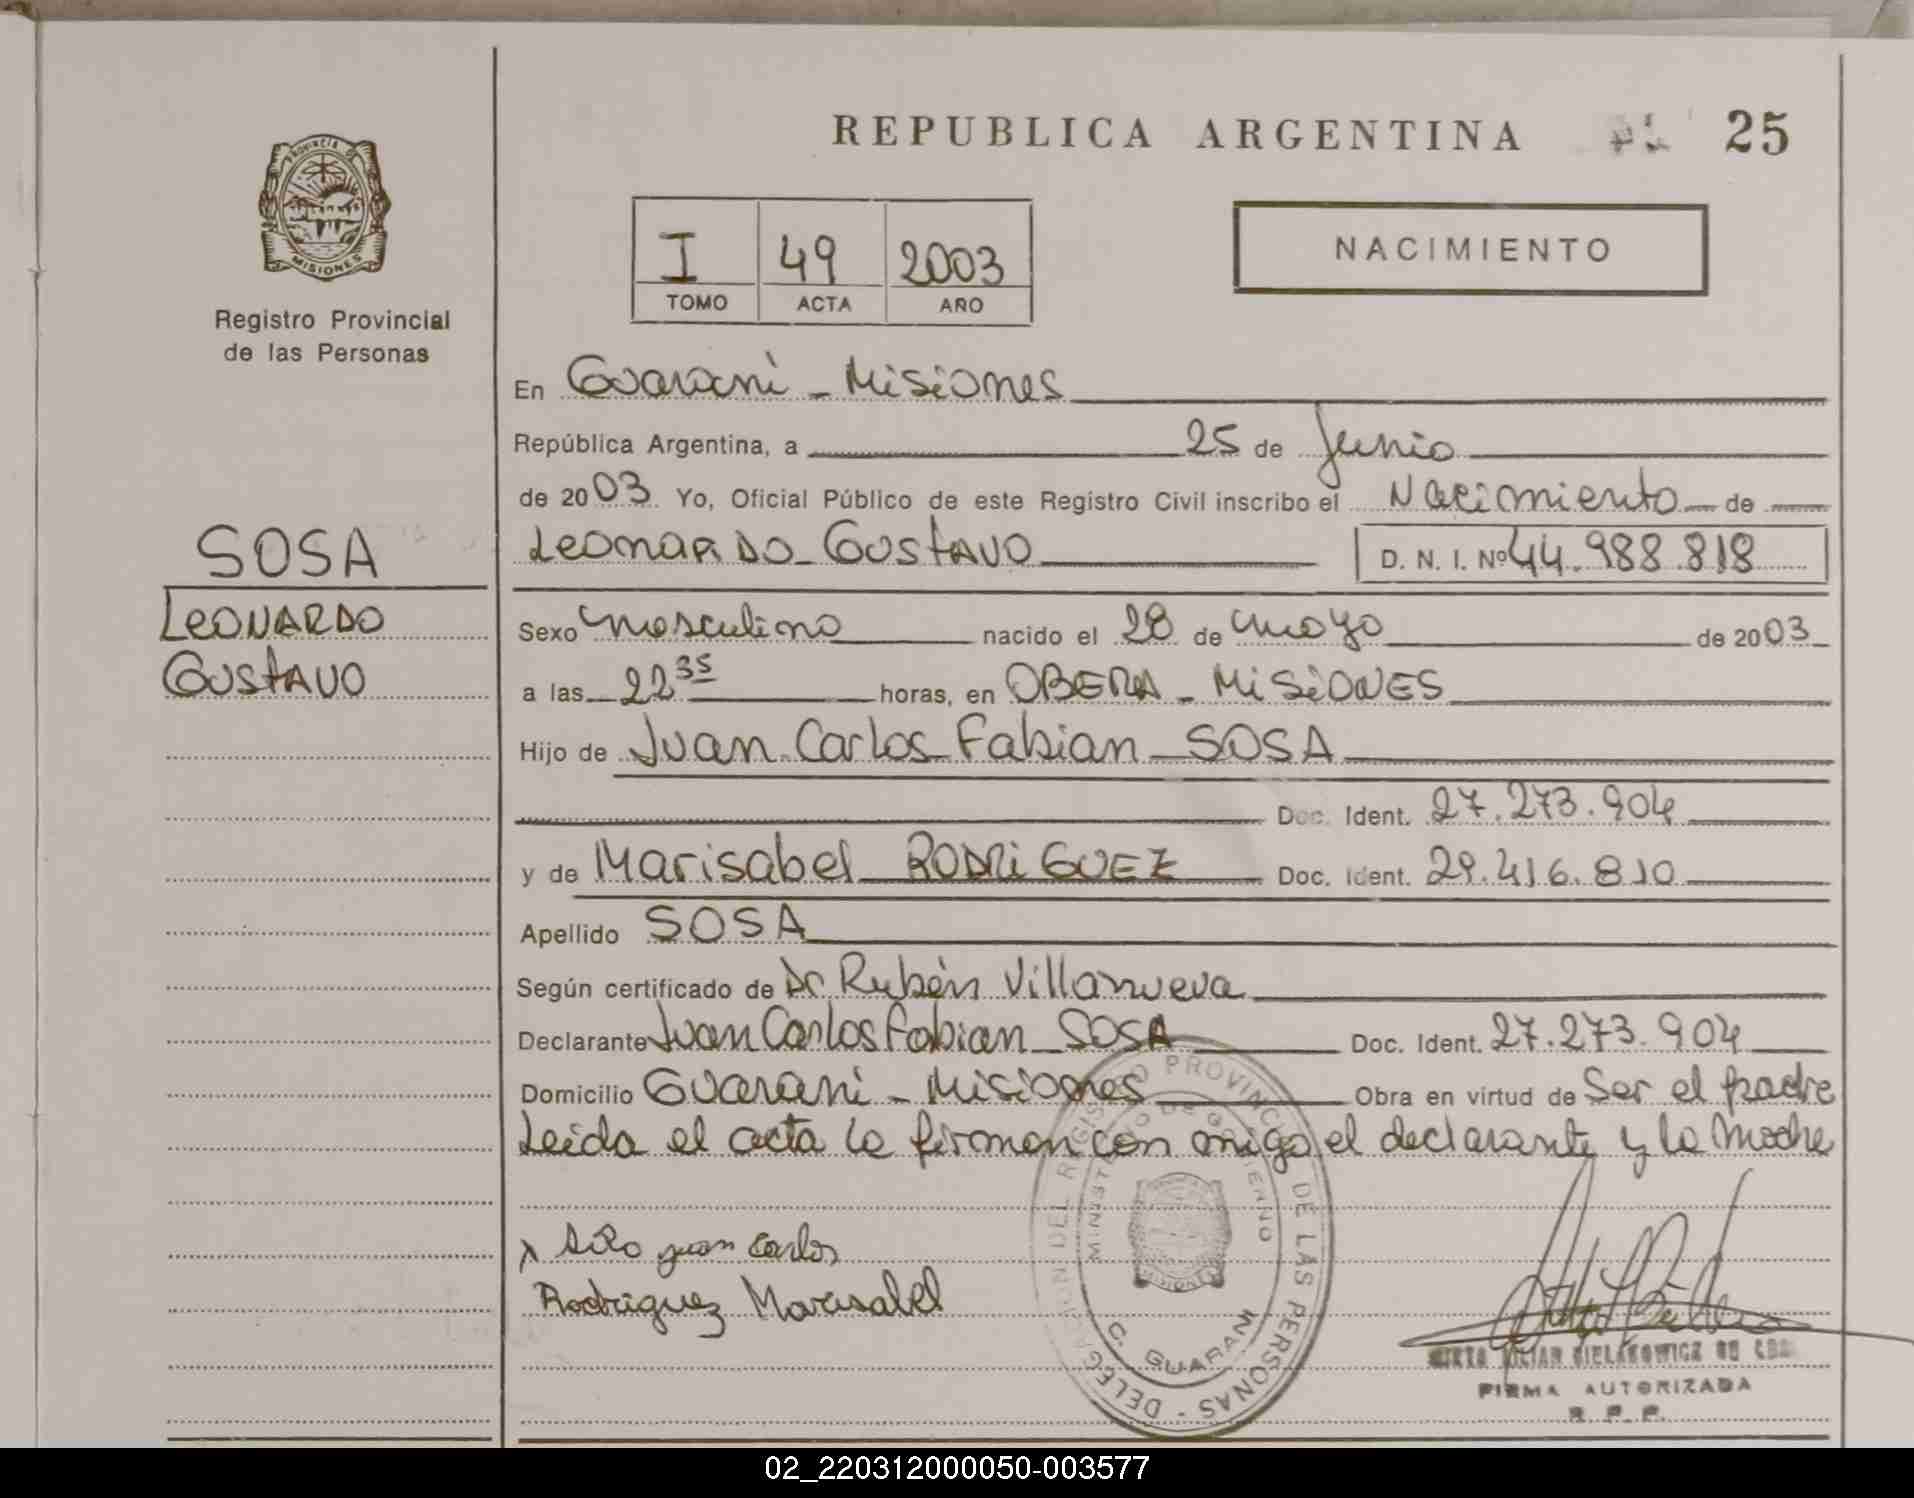 REPUBLICA ARGENTINA 25
PROVINCIA DE
MISIONES
Registro Provincial
de las Personas
I 49 2003
TOMO ACTA AÑO
NACIMIENTO
En Guarani - Misiones
República Argentina, a 25 de Junio
de 2003 Yo, Oficial Público de este Registro Civil inscribo el Nacimiento de
SOSA
LEONARDO
GUSTAVO
Leonardo Gustavo D. N. I. Nº 44.988.818
Sexo masculino nacido el 28 de mayo de 2003
a las 22 35 horas, en OBERA - MISIONES
Hijo de Juan Carlos Fabian SOSA
Doc. Ident. 27.273.904
y de Marisabel RODRIGUEZ Doc. Ident. 29.416.810
Apellido SOSA
Según certificado de Dr Rubén Villanueva
Declarante Juan Carlos Fabian SOSA Doc. Ident. 27.273.904
Domicilio Guarani - Misiones Obra en virtud de Ser el padre
Leida el acta la firman con migo el declarante y la Madre
x juan Carlos
Rodriguez Marisabel
DELEGACION DEL REGISTRO PROVINCIAL DE LAS PERSONAS
MINISTERIO DE GOBIERNO
MISIONES
C. GUARANI
FIRMA AUTORIZADA
R. P. P.
02_220312000050-003577